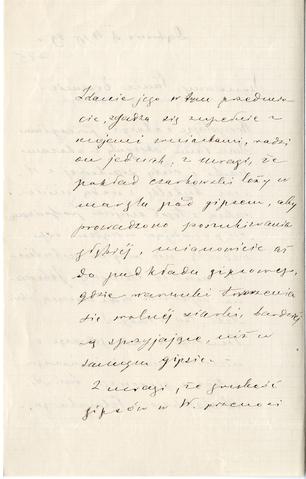 Zdanie jego w tym przedmio-
cie, zgadza się zupełnie z
mojemi wnioskami, radzi
on jednak, z uwagi, że
pokład czarkowski leży w
marglu pod gipsem, aby
prowadzono poszukiwania
głębiej, mianowicie aż
do podkładu gipsowego,
gdzie warunki tworzenia
się rodzimej siarki, bardziej
są sprzyjające, niż w
samym gipsie.
Z uwagi, że grubość
gipsów w W. przenosi